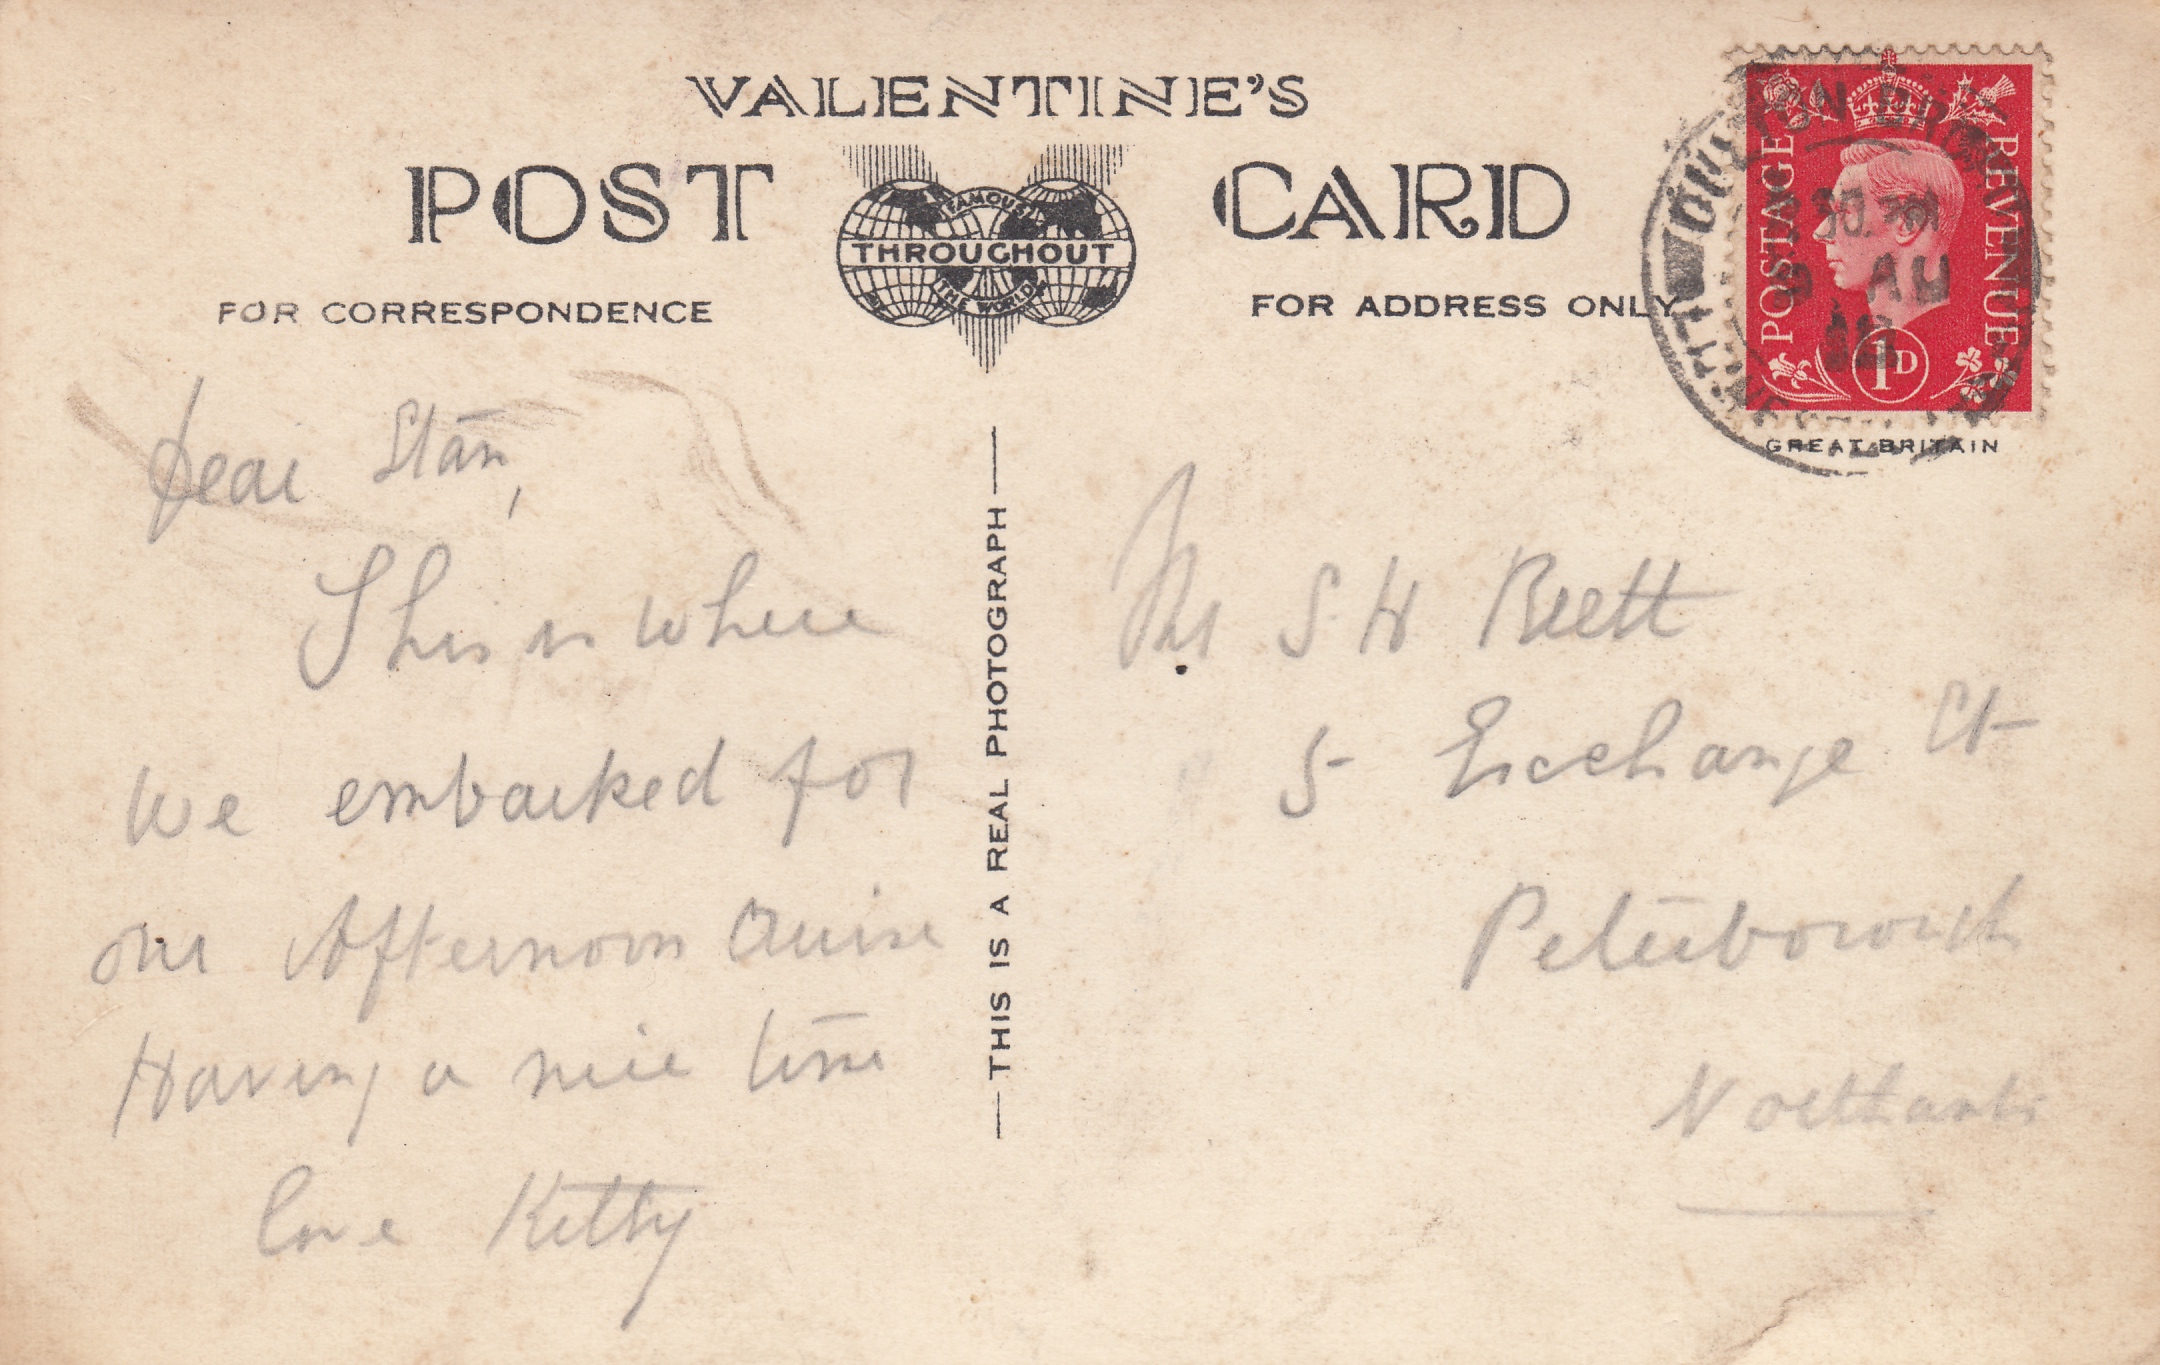 VALENTINE'S
POST CARD
FAMOUS
THROUGHOUT
THE WORLD
FOR CORRESPONDENCE
FOR ADDRESS ONLY
POSTAGE REVENUE
1D
AU
GREAT BRITAIN
Dear Stan,
This is where
we embarked for
our Afternoon Cruise
Having a nice time
love Kitty
THIS IS A REAL PHOTOGRAPH
Mr S. H
5 Exchange St
Peterborough
Northants